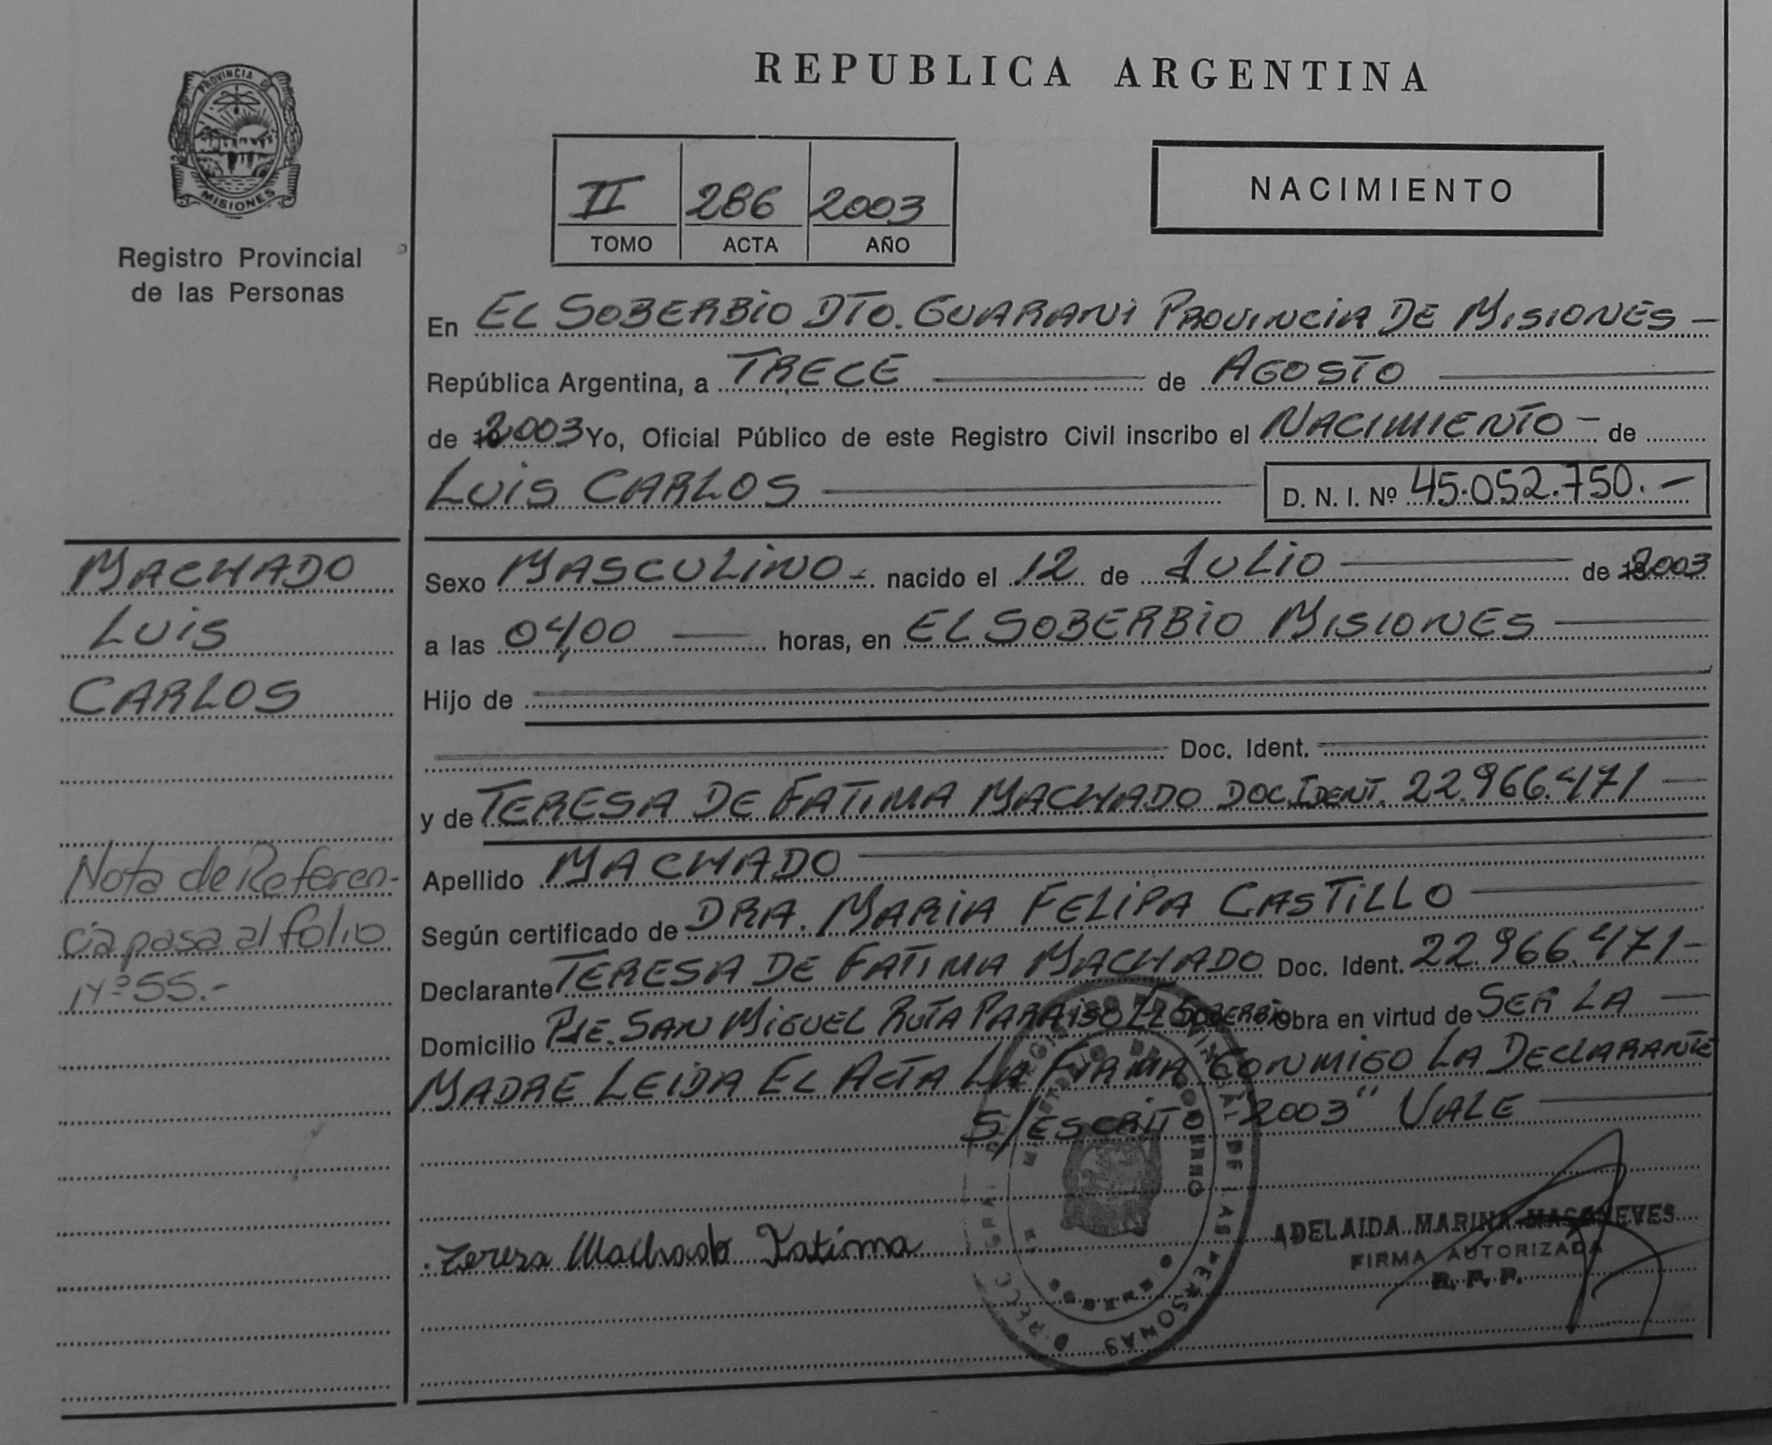 REPUBLICA ARGENTINA
PROVINCIA DE
MISIONES
Registro Provincial
de las Personas
II 286 2003
TOMO ACTA AÑO
NACIMIENTO
En EL SOBERBIO DTO. GUARANI PROVINCIA DE MISIONES -
República Argentina, a TRECE de AGOSTO
de 2003 Yo, Oficial Público de este Registro Civil inscribo el NACIMIENTO - de
LUIS CARLOS D. N. I. Nº 45.052.750.-
Sexo MASCULINO - nacido el 12 de JULIO de 2003
a las 04,00 horas, en EL SOBERBIO MISIONES
Hijo de
Doc. Ident.
y de TERESA DE FATIMA MACHADO DOC. IDENT. 22.966.471
Apellido MACHADO
Según certificado de DRA. MARIA FELIPA CASTILLO
Declarante TERESA DE FATIMA MACHADO Doc. Ident. 22.966.471-
Domicilio PJE. SAN MIGUEL RUTA PARAISO EL SOBERBIO Obra en virtud de SER LA
MADRE LEIDA EL ACTA LA FIRMA CONMIGO LA DECLARANTE
S/ESCRITO "2003" VALE
Teresa Machado Fatima
ADELAIDA MARINA
FIRMA AUTORIZADA
R. P. P.
MACHADO
LUIS
CARLOS
Nota de Referen-
cia pasa al folio
Nº 55.-